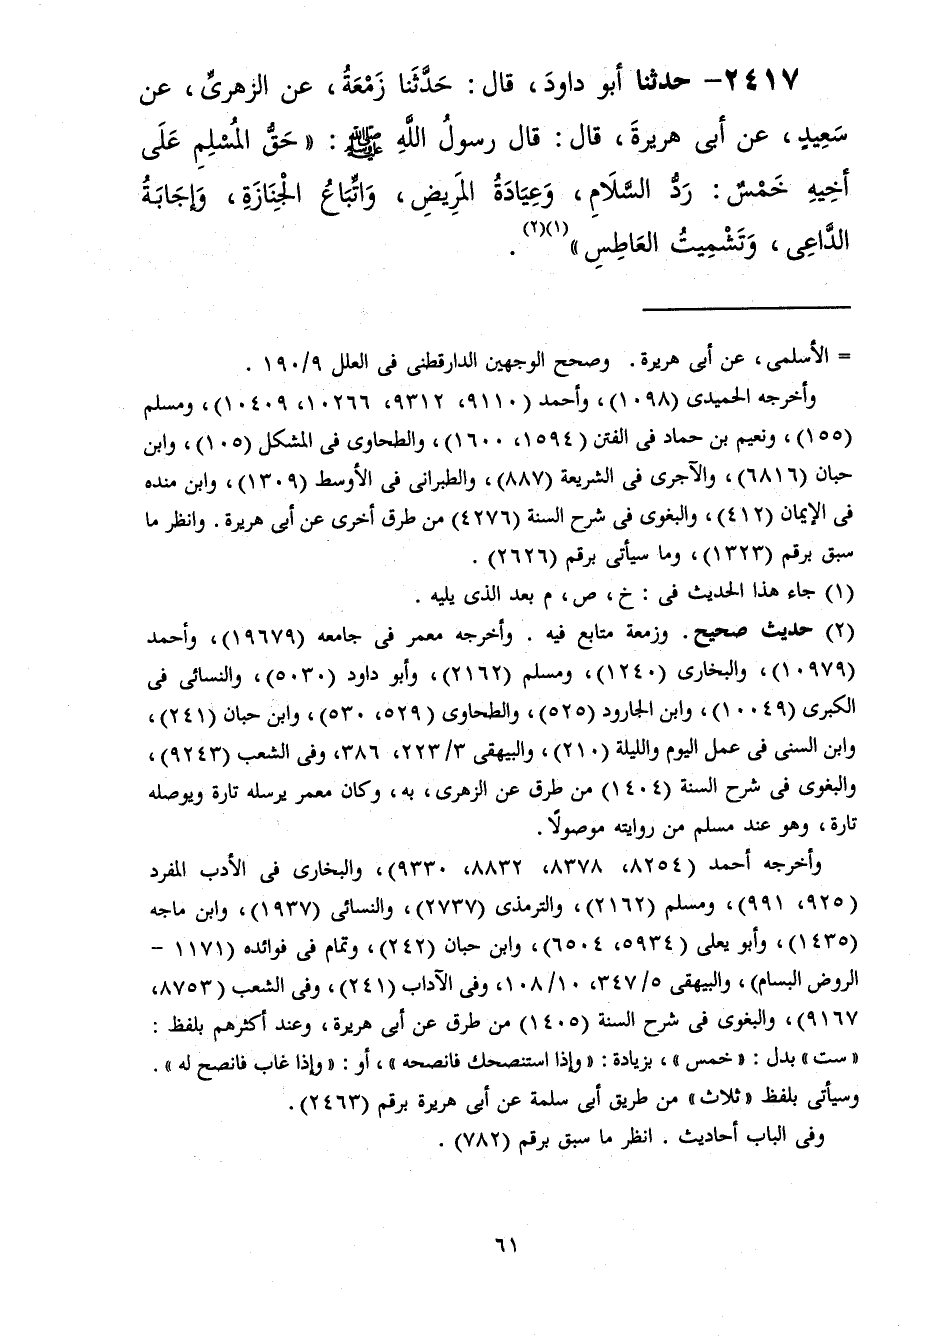 ٢٤١٧- حدثنا أبو داودَ ، قال : حَدَّثَنا زَمْعَةُ ، عن الزهرىِّ ، عن
سَعِيدٍ ، عن أبى هريرةَ ، قال : قال رسولُ اللَّهِ ﷺ : « حَقُّ المُسْلِمِ عَلَى
أخِيهِ خَمْسٌ : رَدُّ السَّلَامِ ، وَعِيَادَةُ المَرِيضِ ، وَاتِّبَاعُ الْجَنَازَةِ ، وَإِجَابَةُ
الدَّاعِى ، وَتَشْمِيتُ العَاطِسِ »(١)(٢) .
= الأسلمى ، عن أبى هريرة . وصحح الوجهين الدارقطنى فى العلل ١٩٠/٩ .
وأخرجه الحميدى (١٠٩٨) ، وأحمد (٩١١٠، ٩٣١٢، ١٠٢٦٦، ١٠٤٠٩) ، ومسلم
(١٥٥) ، ونعيم بن حماد فى الفتن (١٥٩٤، ١٦٠٠) ، والطحاوى فى المشكل (١٠٥) ، وابن
حبان (٦٨١٦) ، والآجرى فى الشريعة (٨٨٧) ، والطبرانى فى الأوسط (١٣٠٩) ، وابن منده
فى الإيمان (٤١٢) ، والبغوى فى شرح السنة (٤٢٧٦) من طرق أخرى عن أبى هريرة . وانظر ما
سبق برقم (١٣٢٣) ، وما سيأتى برقم (٢٦٢٦) .
(١) جاء هذا الحديث فى : خ ، ص ، م بعد الذى يليه .
(٢) حديث صحيح . وزمعة متابع فيه . وأخرجه معمر فى جامعه (١٩٦٧٩) ، وأحمد
(١٠٩٧٩) ، والبخارى (١٢٤٠) ، ومسلم (٢١٦٢) ، وأبو داود (٥٠٣٠) ، والنسائى فى
الكبرى (١٠٠٤٩) ، وابن الجارود (٥٢٥) ، والطحاوى (٥٢٩، ٥٣٠) ، وابن حبان (٢٤١) ،
وابن السنى فى عمل اليوم والليلة (٢١٠) ، والبيهقى ٢٢٣/٣، ٣٨٦، وفى الشعب (٩٢٤٣) ،
والبغوى فى شرح السنة (١٤٠٤) من طرق عن الزهرى ، به ، وكان معمر يرسله تارة ويوصله
تارة ، وهو عند مسلم من روايته موصولًا .
وأخرجه أحمد (٨٢٥٤، ٨٣٧٨، ٨٨٣٢، ٩٣٣٠) ، والبخارى فى الأدب المفرد
(٩٢٥، ٩٩١) ، ومسلم (٢١٦٢) ، والترمذى (٢٧٣٧) ، والنسائى (١٩٣٧) ، وابن ماجه
(١٤٣٥) ، وأبو يعلى (٥٩٣٤، ٦٥٠٤) ، وابن حبان (٢٤٢) ، وتمام فى فوائده (١١٧١ -
الروض البسام) ، والبيهقى ٣٤٧/٥، ١٠٨/١٠، وفى الآداب (٢٤١) ، وفى الشعب (٨٧٥٣،
٩١٦٧) ، والبغوى فى شرح السنة (١٤٠٥) من طرق عن أبى هريرة ، وعند أكثرهم بلفظ :
«ست» بدل : « خمس » ، بزيادة : « وإذا استنصحك فانصحه » ، أو : « وإذا غاب فانصح له » .
وسيأتى بلفظ «ثلاث» من طريق أبى سلمة عن أبى هريرة برقم (٢٤٦٣) .
وفى الباب أحاديث . انظر ما سبق برقم (٧٨٢) .
٦١